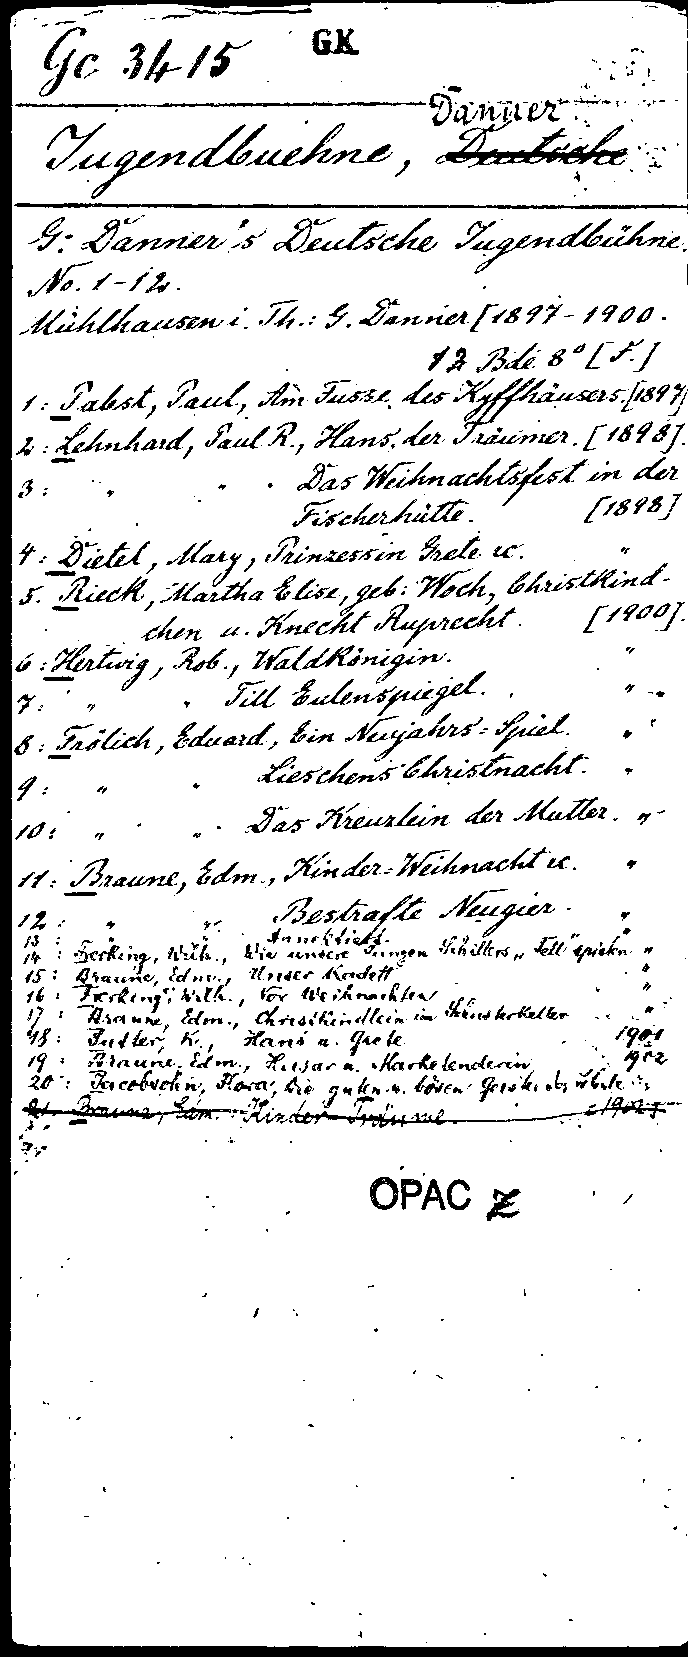 Gc 3415 GK
Danner
Jugendbuehne, Deutsche
G. Danner's Deutsche Jugendbühne.
No. 1-12.
Mühlhausen i. Th.: G. Danner [1897-1900.
12 Bde 8° [F.]
1: Pabst, Paul, Am Fusse des Kyffhäusers. [1897]
2: Lehnhard, Paul R., Hans, der Träumer. [1898].
3: " " . Das Weihnachtsfest in der
Fischerhütte. [1898]
4: Dietel, Mary, Prinzessin Grete etc. "
5. Rieck, Martha Elise, geb: Woch, Christkind-
chen u. Knecht Ruprecht. [1900].
6: Hertwig, Rob., Waldkönigin. "
7: " " Till Eulenspiegel. "
8: Frölich, Eduard, Ein Neujahrs=Spiel. "
9: " " Lieschens Christnacht. "
10: " " Das Kreuzlein der Mutter. "
11: Braune, Edm., Kinder=Weihnacht etc. "
12: " " Bestrafte Neugier. "
13: " "
14: Ferking, Wilh., Wie unsere Jungen Schillers „Tell" spielen "
15: Braune, Edm., Unser Kadett "
16: Ferking, Wilh., Vor Weihnachten "
17: Braune, Edm., Christkindlein im Schusterkeller "
18: K., Hans u. Grete 1901
19: Braune, Edm., Husar u. Marketenderin 1902
20: Jacobsohn, Flora, Die guten u. bösen Geister der
21. Braune, Edm. Kinder-Träume. [1902]
OPAC Z